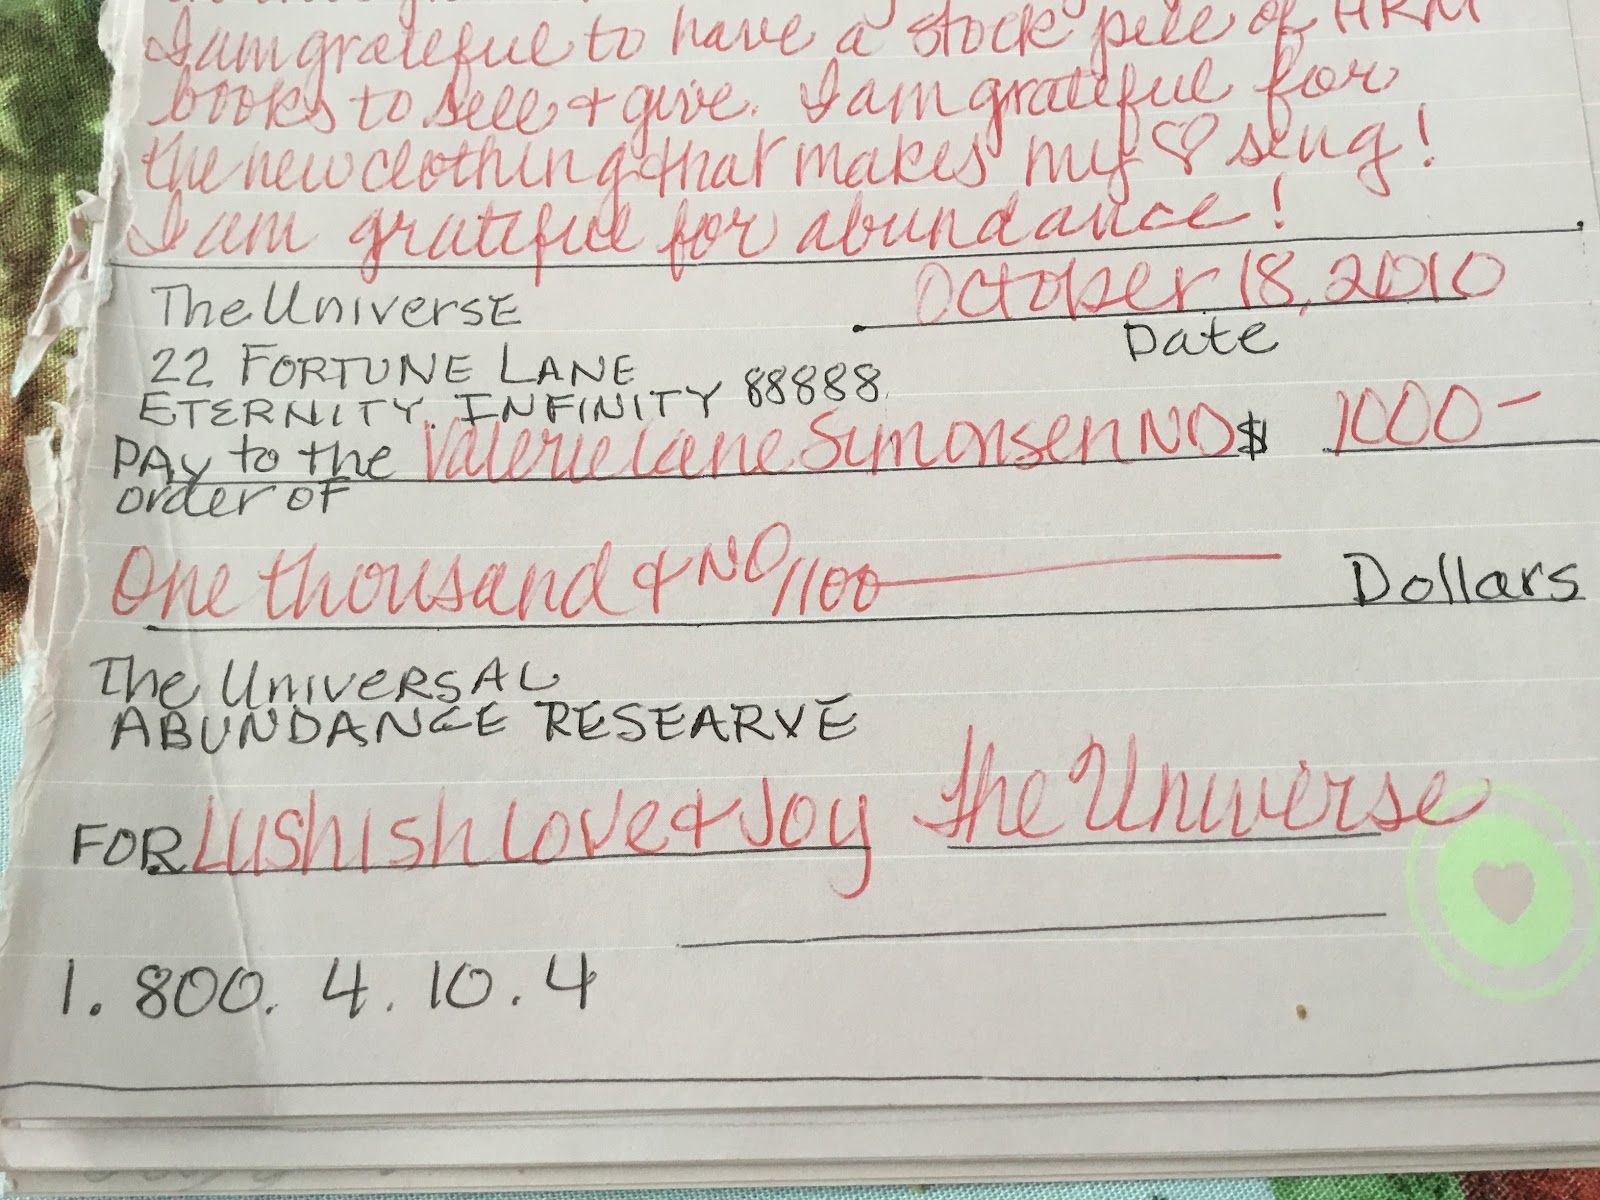 I am grateful to have a stock pile of HRM
books to sell & give. I am grateful for
the new clothing that makes my ♡ sing!
I am grateful for abundance!
The Universe
October 18, 2010
Date
22 Fortune Lane
Eternity. Infinity 88888
Pay to the Valerie Lane Simonsen ND $ 1000-
order of
One thousand & NO/100 Dollars
The Universal
Abundance Researve
FOR Lushish Love & Joy The Universe
1. 800. 4. 10. 4